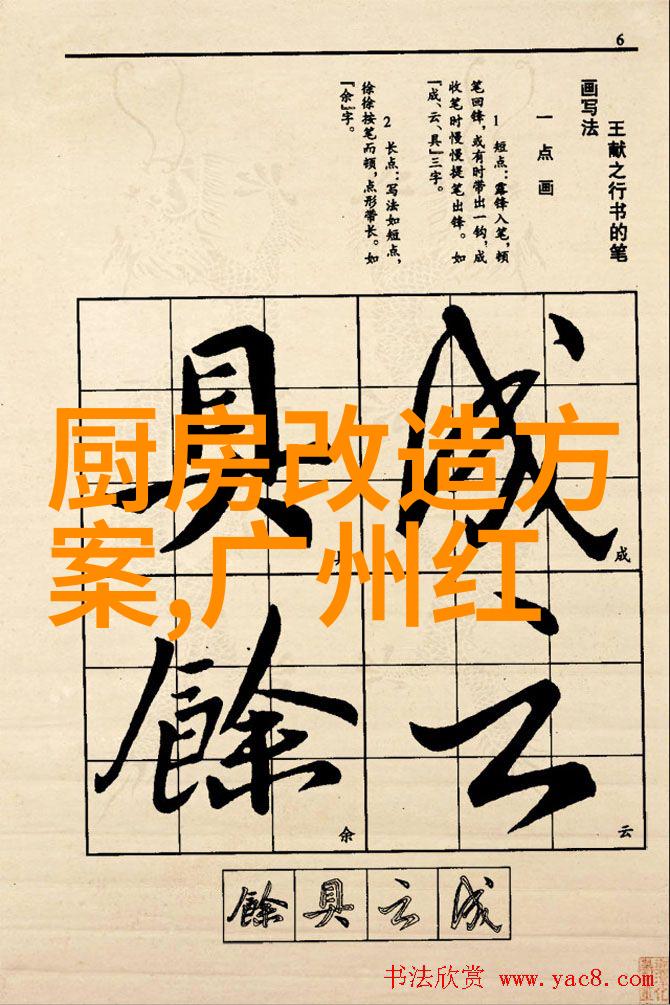 6
王献之行书的笔
画写法
一点画
1 短点:露锋入笔,顿
笔回锋,或有时带出一钩,成
收笔时慢慢提笔出锋。如
『成、云、具』三字。
2 长点:写法如短点,
徐徐按笔而顿,点形带长。如
『余』字。
成
具
云
餘
成
云
余
厨房改造方
案,广州红
餘 具 云 成
书法欣赏 www.yac8.com